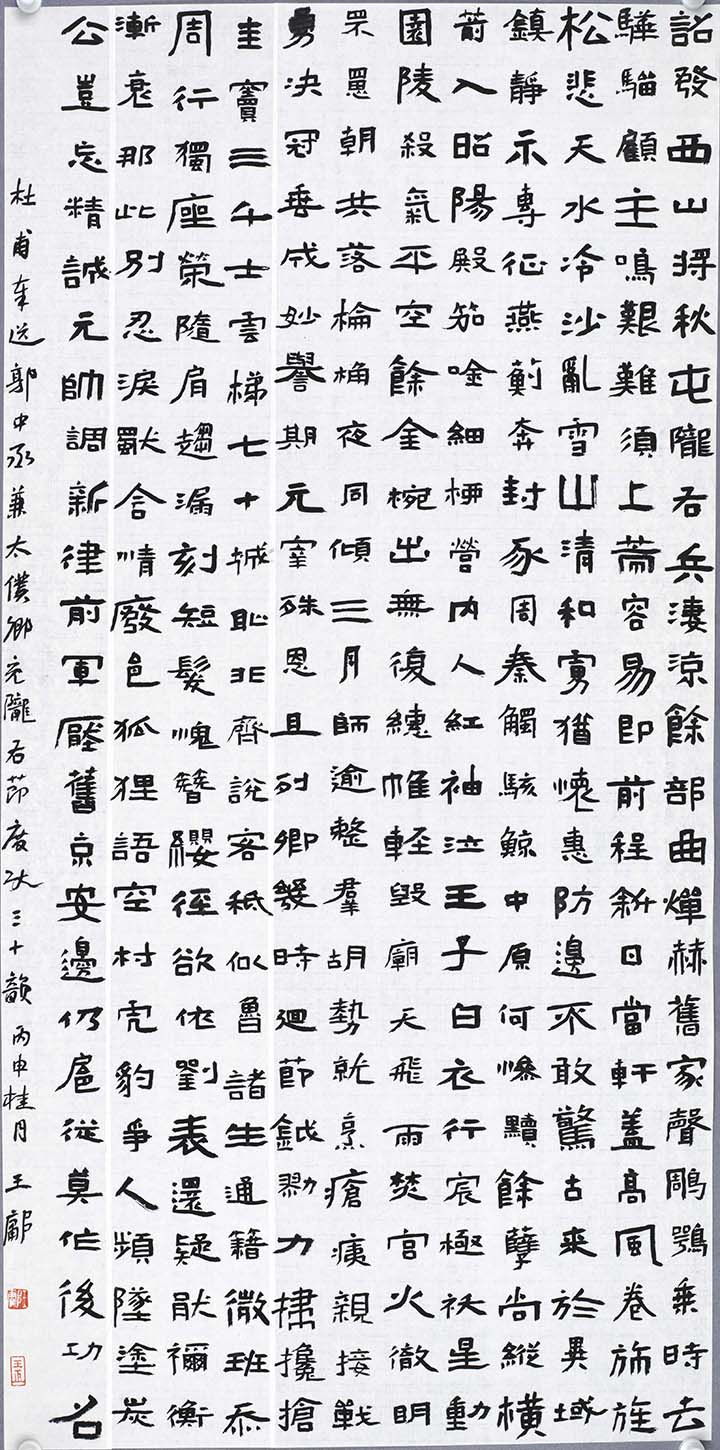 詔發西山將秋屯隴右兵淒涼餘部曲燀赫舊家聲鵰鶚乘時去
驊騮顧主鳴艱難須上策容易即前程斜日當軒蓋高風卷旆旌
松悲天水冷沙亂雪山清和虜猶懷惠防邊不敢驚古來於異域
鎮靜示專征燕薊奔封豕周秦觸駭鯨中原何慘黷餘孽尚縱橫
箭入昭陽殿笳唫細柳營內人紅袖泣王子白衣行宸極祅星動
園陵殺氣平空餘金椀出無復繐帷輕毀廟天飛雨焚宮火徹明
罘罳朝共落棆桷夜同傾三月師逾整羣胡勢就烹瘡痍親接戰
勇決冠垂成妙譽期元宰殊恩且列卿幾時迴節鉞勠力掃欃槍
圭竇三千士雲梯七十城恥非齊說客祗似魯諸生通籍微班忝
周行獨座榮隨肩趨漏刻短髮愧簪纓徑欲依劉表還疑猒禰衡
漸衰那此別忍淚獨含情廢邑狐狸語空村虎豹爭人頻墜塗炭
公豈忘精誠元帥調新律前軍壓舊京安邊仍扈從莫作後功名
杜甫奉送郭中丞兼太僕卿充隴右節度使三十韻 丙申桂月 王鄺